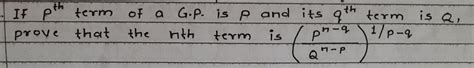 . If pᵗʰ term of a G.P. is p and its qᵗʰ term is Q,
prove that the nth term is (pⁿ⁻ᑫ / Qⁿ⁻ᵖ)^1/p-q